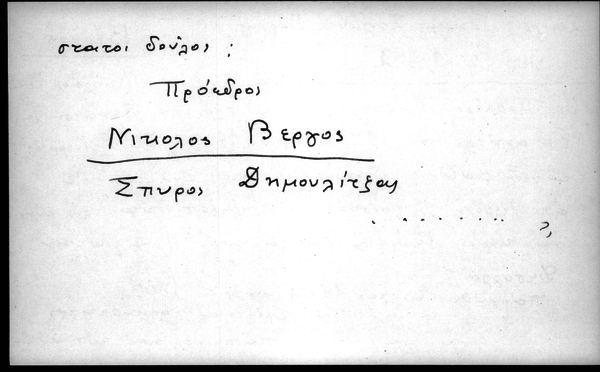 στατοι δούλοι :
Πρόεδροι
Νικολος Βεργος
Σπυρος Δημουλίτξας
. . . . . . . . ?,